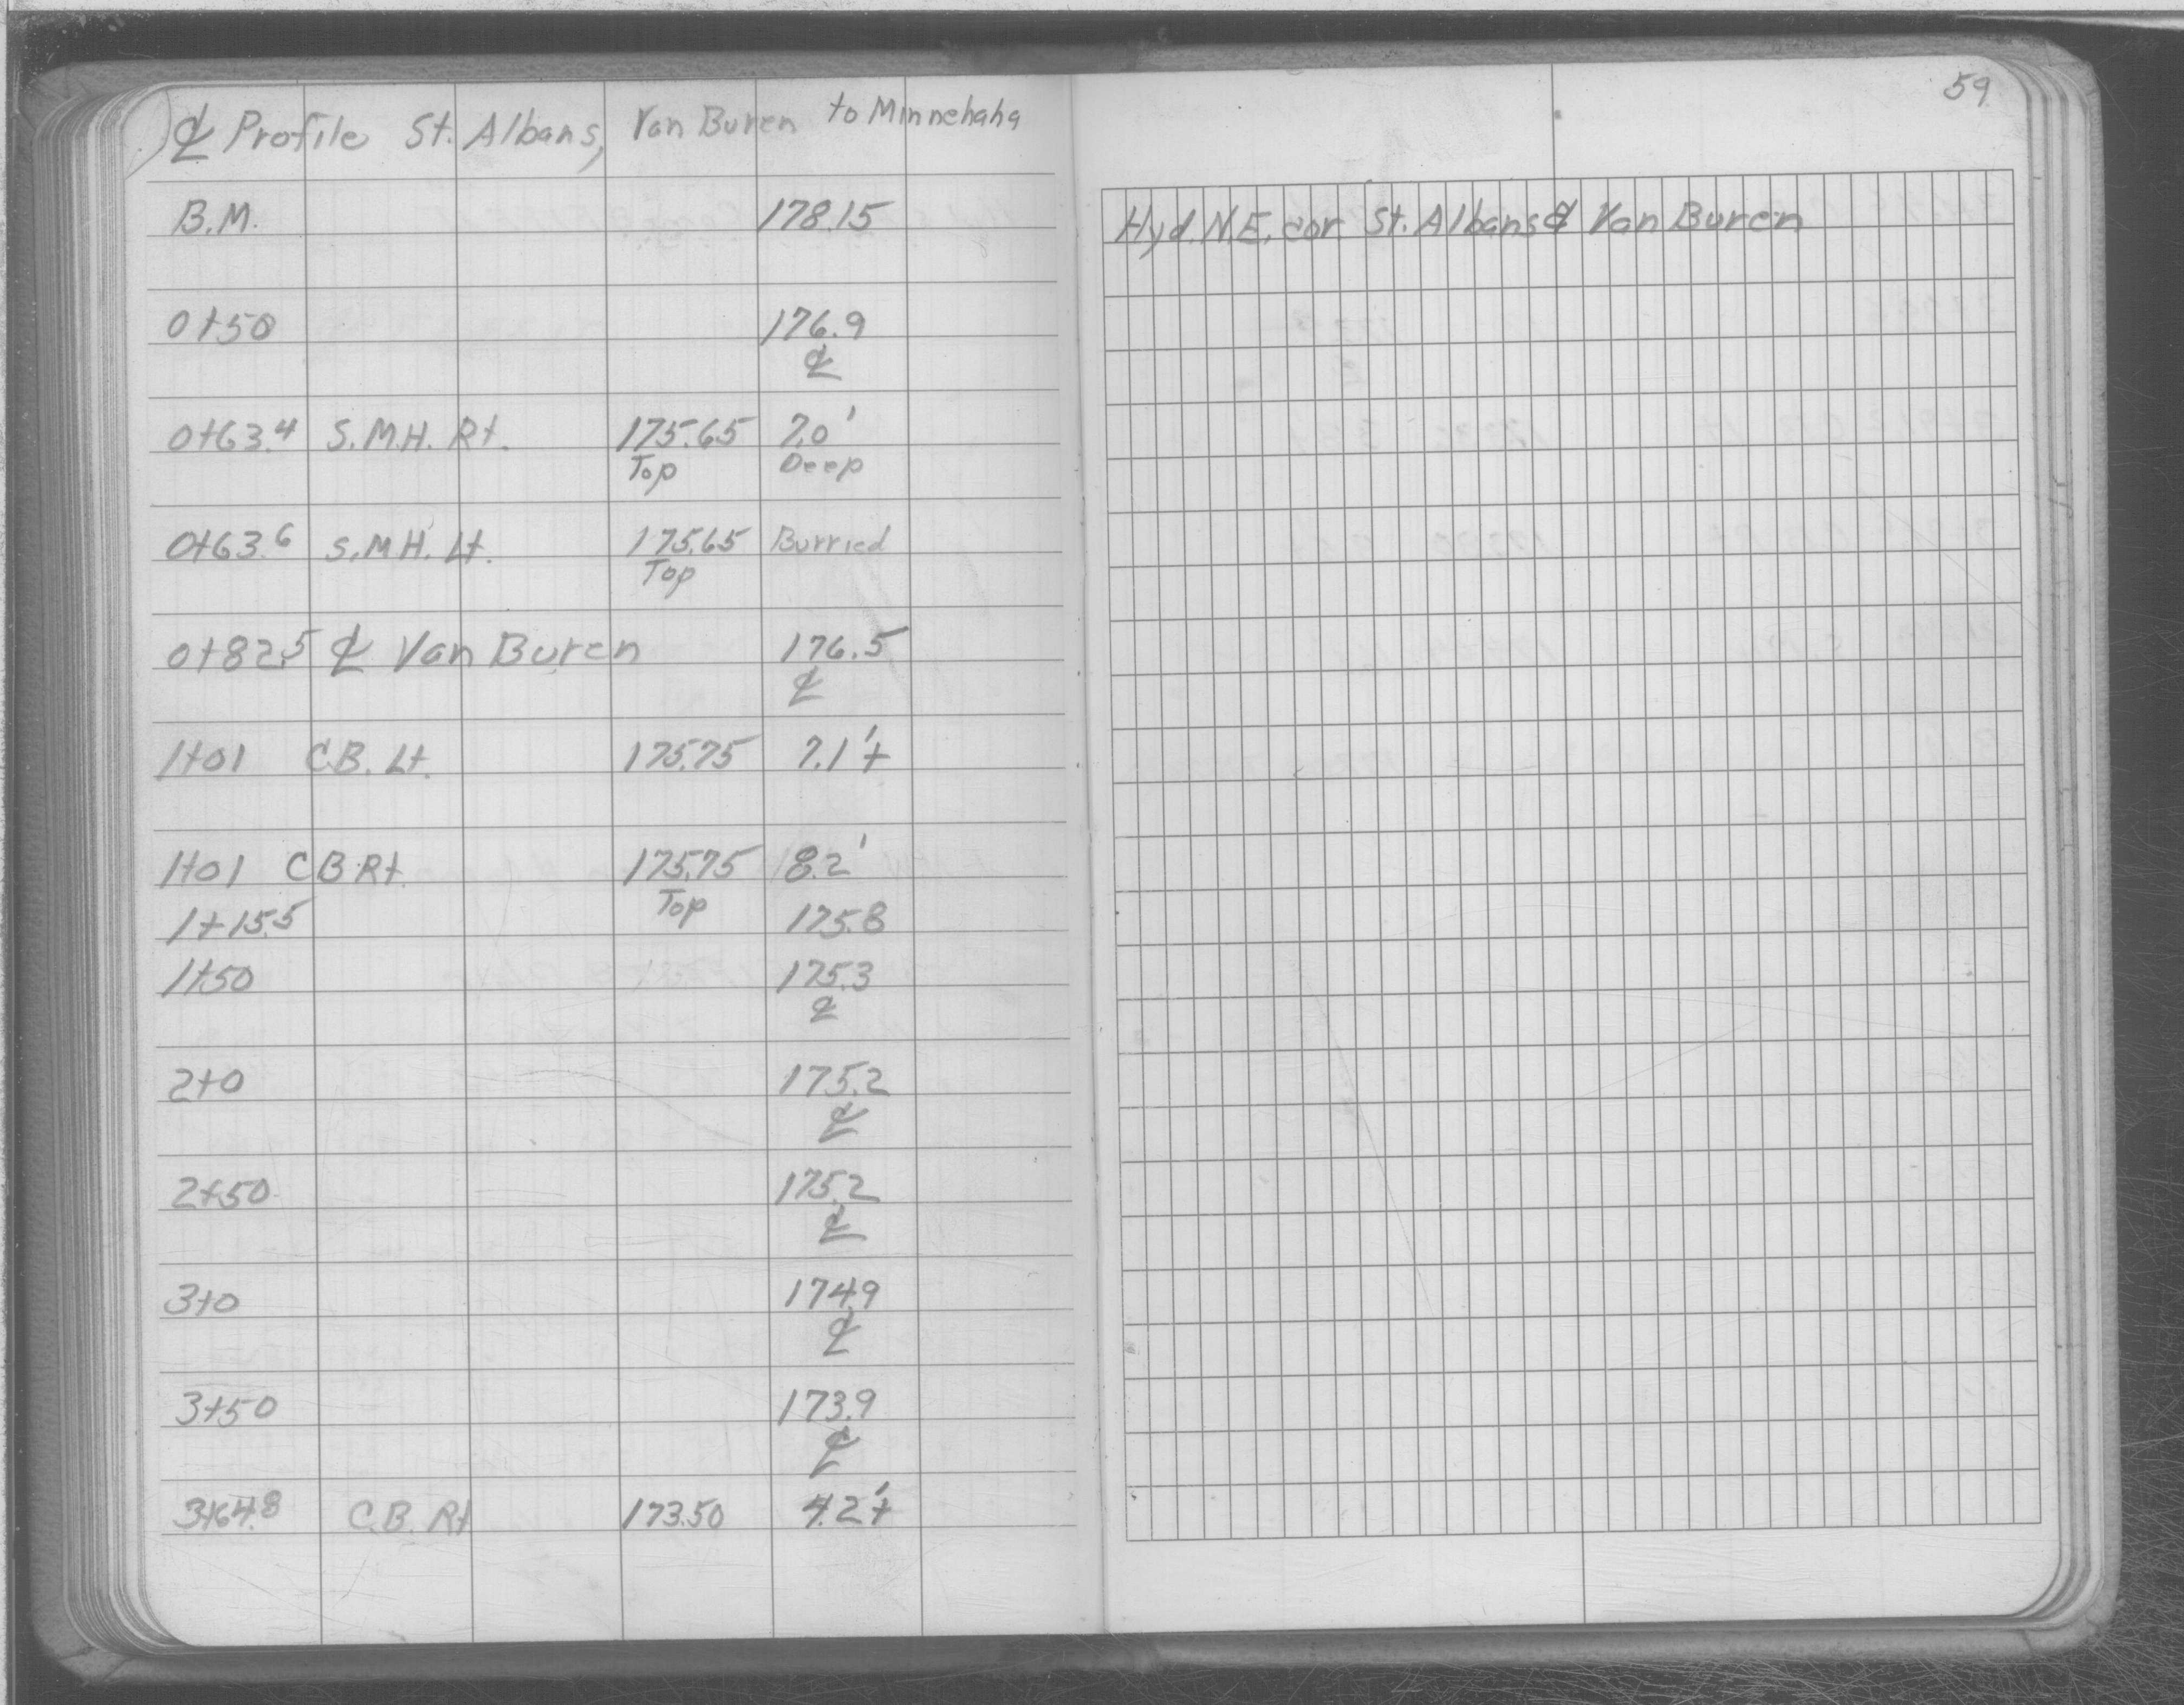 59
℄ Profile St. Albans, Van Buren to Minnehaha
B.M. 178.15 Hyd. N.E. cor. St. Albans & Van Buren
0+50 176.9
℄
0+63.4 S.M.H. Rt. 175.65 7.0'
Top Deep
0+63.6 S.M.H. Lt. 175.65 Burried
Top
0+82.5 ℄ Van Buren 176.5
℄
1+01 C.B. Lt. 175.75 7.1'±
1+01 C B Rt. 175.75 8.2'
Top
1+15.5 175.8
1+50 175.3
℄
2+0 175.2
℄
2+50 175.2
℄
3+0 174.9
℄
3+50 173.9
℄
3+64.8 C.B. Rt 173.50 4.2'±